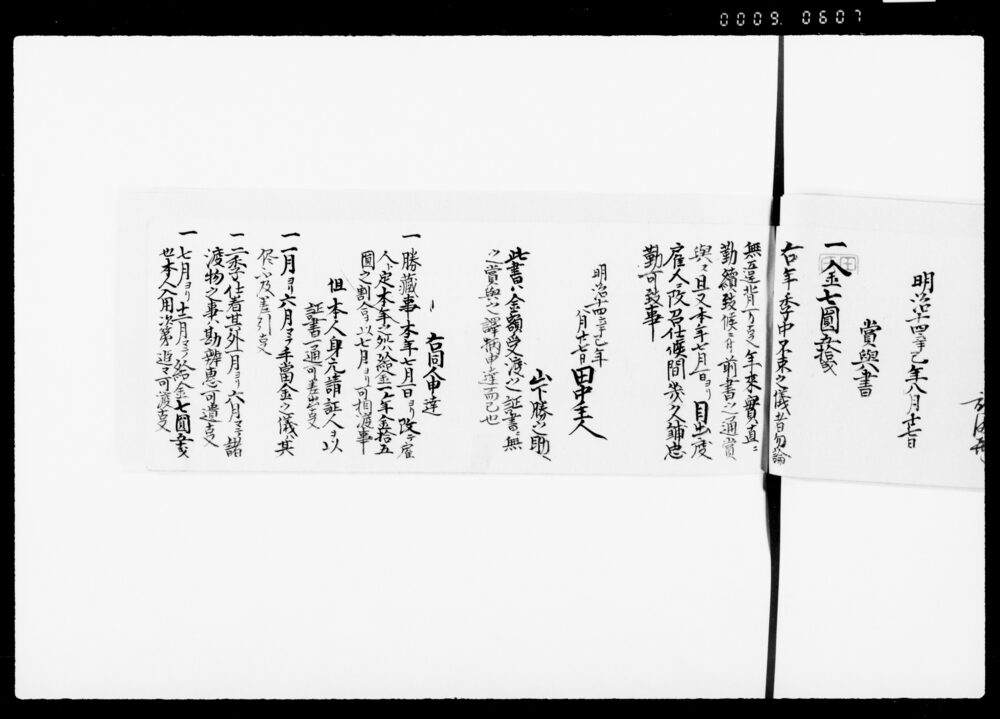 0009 0607
明治十四辛巳年八月廿七日
賞與書
一 入金七圓五拾戔
右年季中不束之儀者勿論
無違背 年来實直ニ
勤續致候ニ付前書之通賞
與ス且又本年七月一日ヨリ目出度
雇人ニ改召仕候間幾久鋪忠
勤可致事
明治十四辛巳年
八月廿七日 田中主人
山下勝之助
此書ハ金額受渡ノ証書ニ無
之賞與ノ譯柄申達而已也
右同人申達
一 勝藏事本年七月一日ヨリ改テ雇
人ト定本年之処給金一ヶ年金拾五
圓之割合ヲ以七月ヨリ可相渡事
但本人身元請証人ヲ以
証書一通可差出事
一 一月ヨリ六月マテ手當金之儀ハ其
侭不及差引事
一 二季仕着其外一月ヨリ六月マテ諸
渡物之事ハ勘辨恵可遣事
一 七月ヨリ十二月マテ給金七圓五拾戔
也本人入用次第追々可渡事